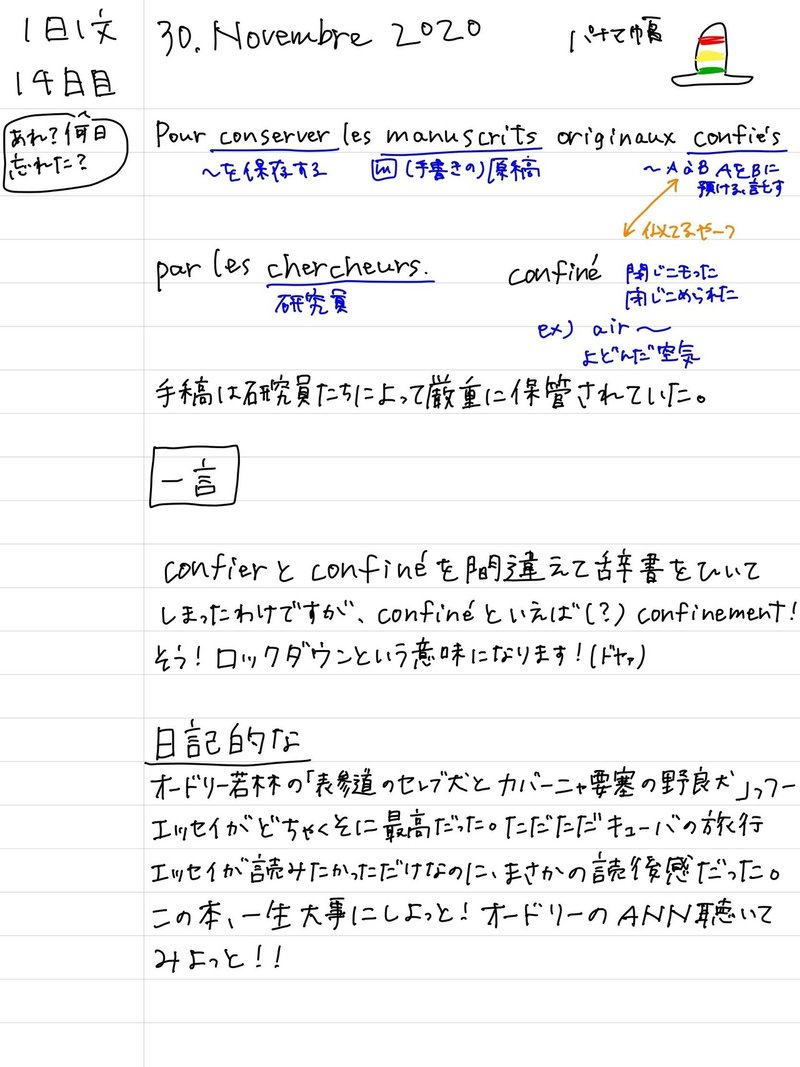 1日1文
14日目
30. Novembre 2020
パナマ帽
あれ?何日
忘れた?
Pour conserver les manuscrits originaux confiés
〜を保存する
m (手書きの)原稿
〜A à B AをBに
預ける、託す
似てるやーつ
par les chercheurs.
研究員
confiné 閉じこもった
閉じこめられた
ex) air 〜
よどんだ空気
手稿は研究員たちによって厳重に保管されていた。
一言
confierとconfinéを間違えて辞書をひいて
しまったわけですが、confinéといえば(?)confinement!
そう!ロックダウンという意味になります!(ドヤァ)
日記的な
オードリー若林の「表参道のセレブ犬とカバーニャ要塞の野良犬」っつー
エッセイがどちゃくそに最高だった。ただただキューバの旅行
エッセイが読みたかっただけなのに、まさかの読後感だった。
この本、一生大事にしよっと!オードリーのANN聴いて
みよっと!!